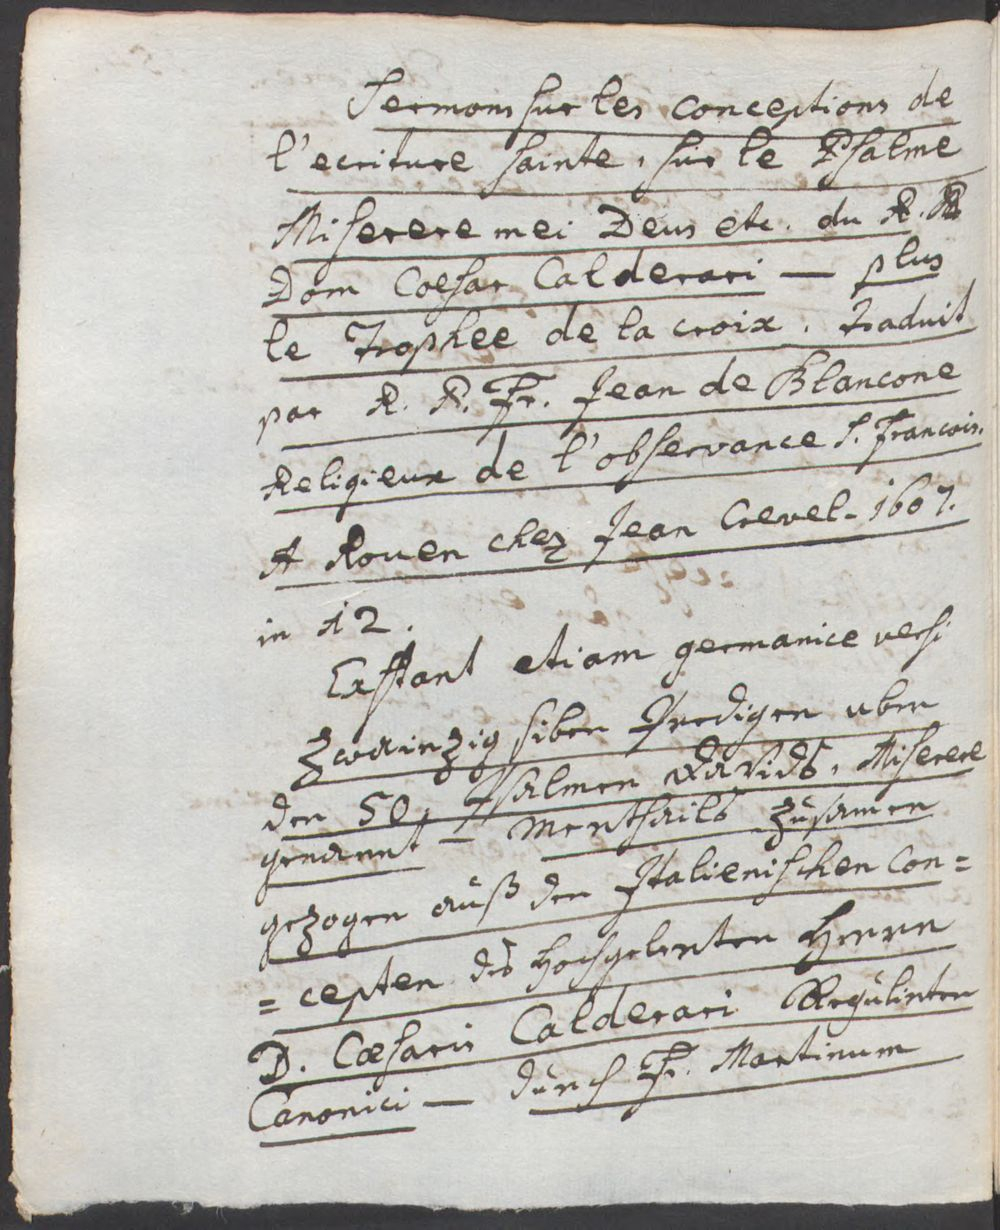 Sermons sur les conceptions de
l'ecriture sainte, sur le Psalme
Miserere mei Deus etc. du R. R.
Dom Coesar Calderari — plus
le Trophee de la croix. traduit
par R. P. Fr. Jean de Blancone
Religieux de l'observance S. Francois.
A Rouen chez Jean Crevel. 1607.
in 12.
Exstant etiam germanice versi
Zwainzig siben Predigen uber
den 50. Psalmen Davids, Miserere
genannt — Merthails zusamen
gezogen auß den Italienischen Con=
=cepten des Hochgelerten Herrn
D. Cæsaris Calderari Regulirten
Canonici — durch Fr. Martinum